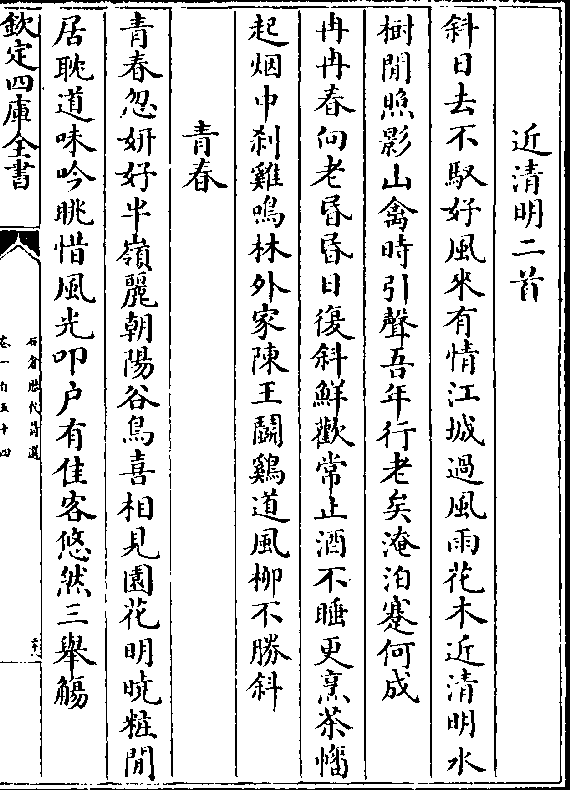 近清明二首
斜日去不馭好風來有情江城過風雨花木近清明水
樹閒照影山禽時引聲吾年行老矣淹泊蹇何成
冉冉春向老昏昏日復斜鮮歡常止酒不睡更烹茶幡
起烟中刹雞鳴林外家陳王鬭鷄道風柳不勝斜
青春
青春忽妍好半嶺麗朝陽谷鳥喜相見園花明晚粧閒
居耽道味吟眺惜風光叩户有佳客悠然三舉觴
欽定四庫全書
石倉歷代詩選
卷一百五十四